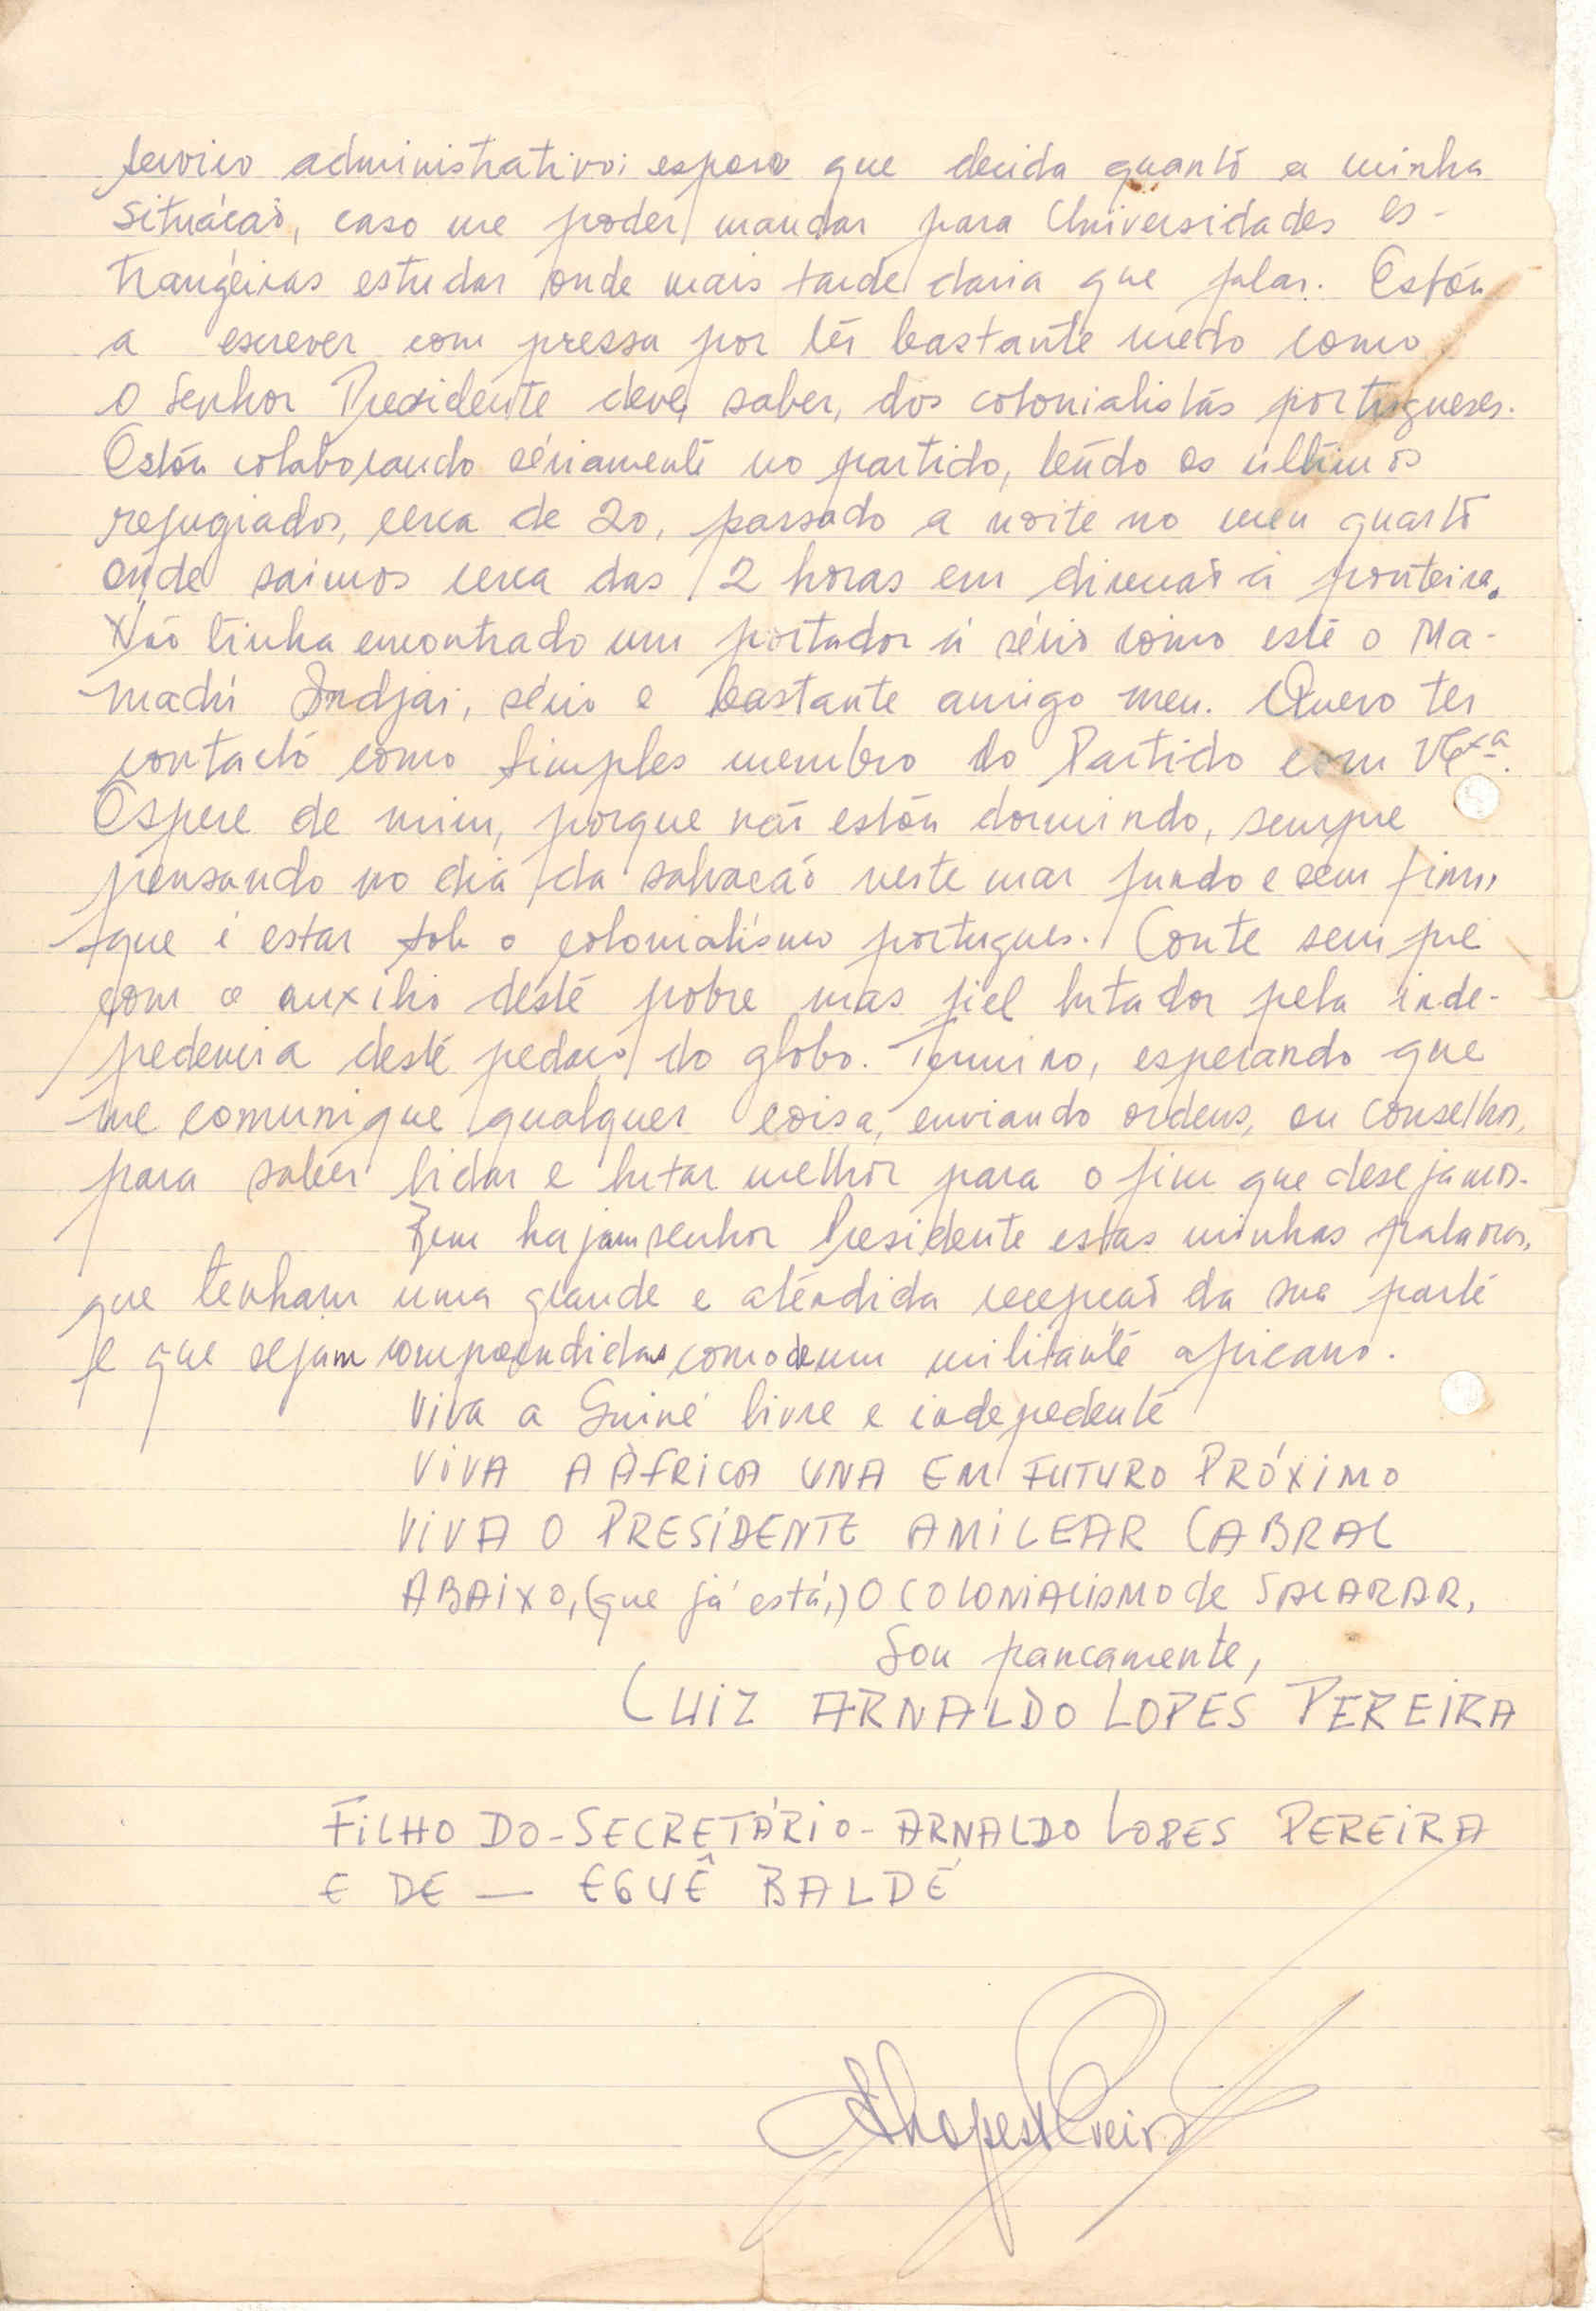 serviço administrativo; espero que decida quantó a minha
situácaõ, caso me poder mandar para Universidades es-
trangéiras estudar onde mais tarde daria que falar. Estóu
a escrever com pressa por têr bastante mêdo como
o Senhor Presidente deve, saber, dos colonialistas portugueses.
Estóu colaborando sériamente no partido, tendo os últimos
refugiados, cerca de 20, passado a noite no meu quartó
onde saimos cerca das 2 horas em direcaõ á fronteira.
Não tinha encontrado um portador á sério como este o Ma-
madú Indjai, sério e bastante amigo meu. Quero ter
contactó como simples membro do Partido com VExª.
Espere de mim, porque não estóu dormindo, sempre
pensando no dia da salvação neste mar fundo e sem fim,
que é estar sob o colonialismo portugues. Conte sempre
com o auxilio deste pobre mas fiel lutador pela inde-
pedencia deste pedaço do globo. Termino, esperando que
me comunique qualquer coisa, enviando ordens, ou conselhos,
para saber lidar e lutar melhor para o fim que desejamos.
Bem hajam senhor Presidente estas minhas palavras,
que tenham uma grande e aténdida recepçaõ da sua parte
e que sejam compreendidas como de um militante africano.
Viva a Guiné livre e indepedente
VIVA A ÀFRICA UNA EM FUTURO PRÓXIMO
VIVA O PRESIDENTE AMILCAR CABRAL
ABAIXO, (que já está,) O COLONIALISMO de SALAZAR,
Sou francamente,
LUIZ ARNALDO LOPES PEREIRA
FILHO DO - SECRETÁRIO - ARNALDO LOPES PEREIRA
E DE — EGUÊ BALDÉ